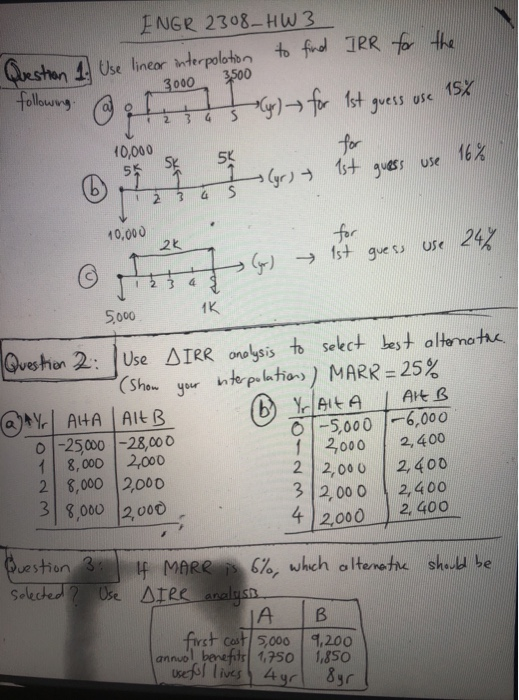 ENGR 2308-HW3
Question 1: Use linear interpolation to find IRR for the
following.
(a) 0 3000 3500
1 2 3 4 5 (yr) → for 1st guess use 15%
10,000
(b) 5K 5K 5K for
1 2 3 4 5 (yr) → 1st guess use 16%
10,000
(c) 2K for
1 2 3 4 5 (yr) → 1st guess use 24%
5,000 1K
Question 2: Use ΔIRR analysis to select best alternative.
(Show your interpolations) MARR = 25%
(a) Yr Alt A Alt B
0 -25,000 -28,000
1 8,000 2,000
2 8,000 2,000
3 8,000 2,000
(b) Yr Alt A Alt B
0 -5,000 -6,000
1 2,000 2,400
2 2,000 2,400
3 2,000 2,400
4 2,000 2,400
Question 3: If MARR is 6%, which alternative should be
selected? Use ΔIRR analysis.
A B
first cost 5,000 9,200
annual benefits 1,750 1,850
useful lives 4yr 8yr